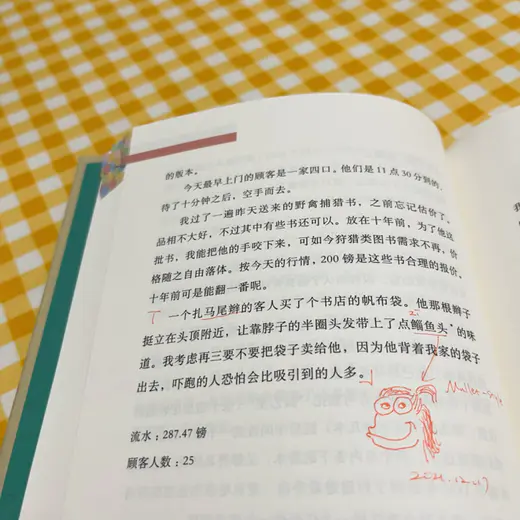 的版本。
今天最早上门的顾客是一家四口。他们是11点30分到的,
待了十分钟之后,空手而去。
我过了一遍昨天送来的野禽捕猎书,之前忘记估价了。
品相不大好,不过其中有些书还可以。放在十年前,为了他这
批书,我能把他的手咬下来,可如今狩猎类图书需求不再,价
格随之自由落体。按今天的行情,200镑是这些书合理的报价,
十年前可是能翻一番呢。
一个扎马尾辫的客人买了个书店的帆布袋。他那根辫子
zi
挺立在头顶附近,让靠脖子的半圈头发带上了点鲻鱼头*的味
道。我考虑再三要不要把袋子卖给他,因为他背着我家的袋子
出去,吓跑的人恐怕会比吸引到的人多。
流水:287.47镑
顾客人数:25